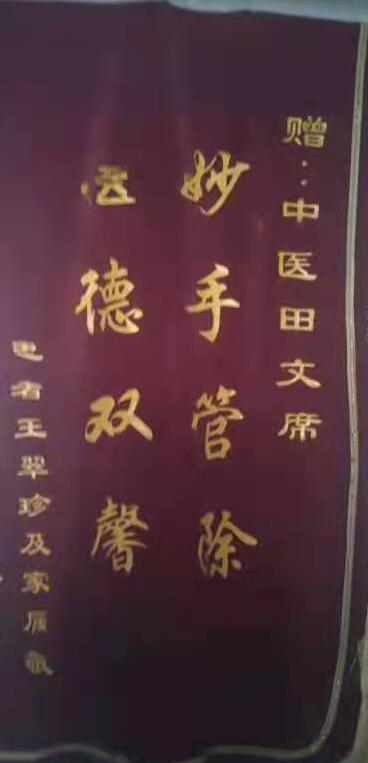 赠:中医田文席
妙手管除
医德双馨
患者王翠珍及家属敬